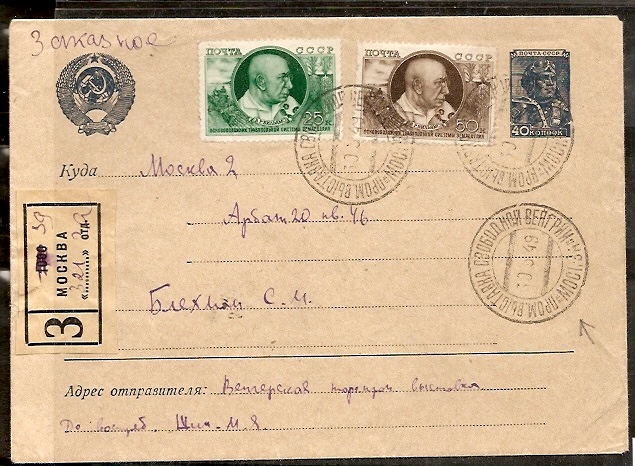 Заказное
ПОЧТА СССР
25 К
ОСНОВОПОЛОЖНИК ТРАВОПОЛЬНОЙ СИСТЕМЫ ЗЕМЛЕДЕЛИЯ
ПОЧТА СССР
50 К
ОСНОВОПОЛОЖНИК ТРАВОПОЛЬНОЙ СИСТЕМЫ ЗЕМЛЕДЕЛИЯ
ПОЧТА СССР
40 КОПЕЕК
Куда Москва 2
Арбат 20 кв. 46
Блехман С. М.
З
МОСКВА
отд.
МОСКВА ПРОМ. ВЫСТАВКА СВОБОДНОЙ ВЕНГРИИ
49
Адрес отправителя: Венгерская выставка
До востреб.